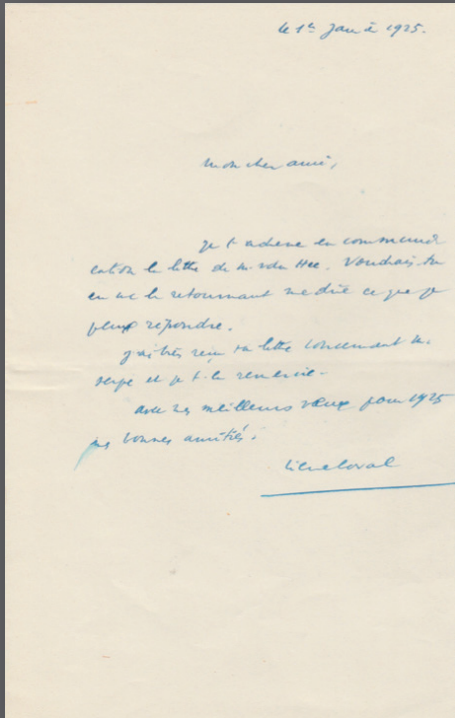 le 1er Janv. 1925.
mon cher ami,
je t'adresse en communi
cation la lettre de M. Hee. Voudrais-tu
en me la retournant me dire ce que je
peux répondre.
j'ai bien reçu ta lettre concernant M.
et je t'en remercie.
avec mes meilleurs vœux pour 1925
mes bonnes amitiés.